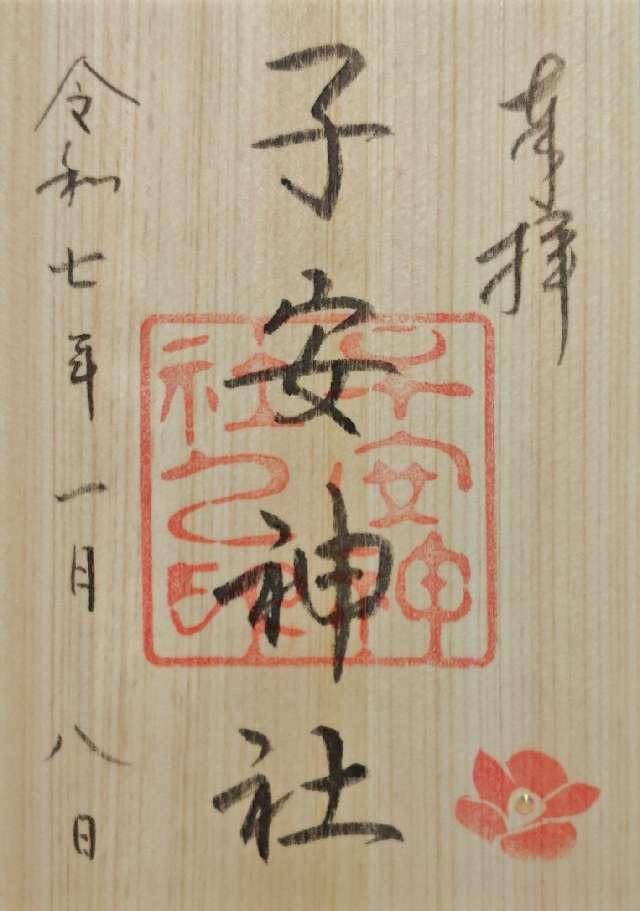 奉拝
子安神社
子安神社之印
令和七年一月八日